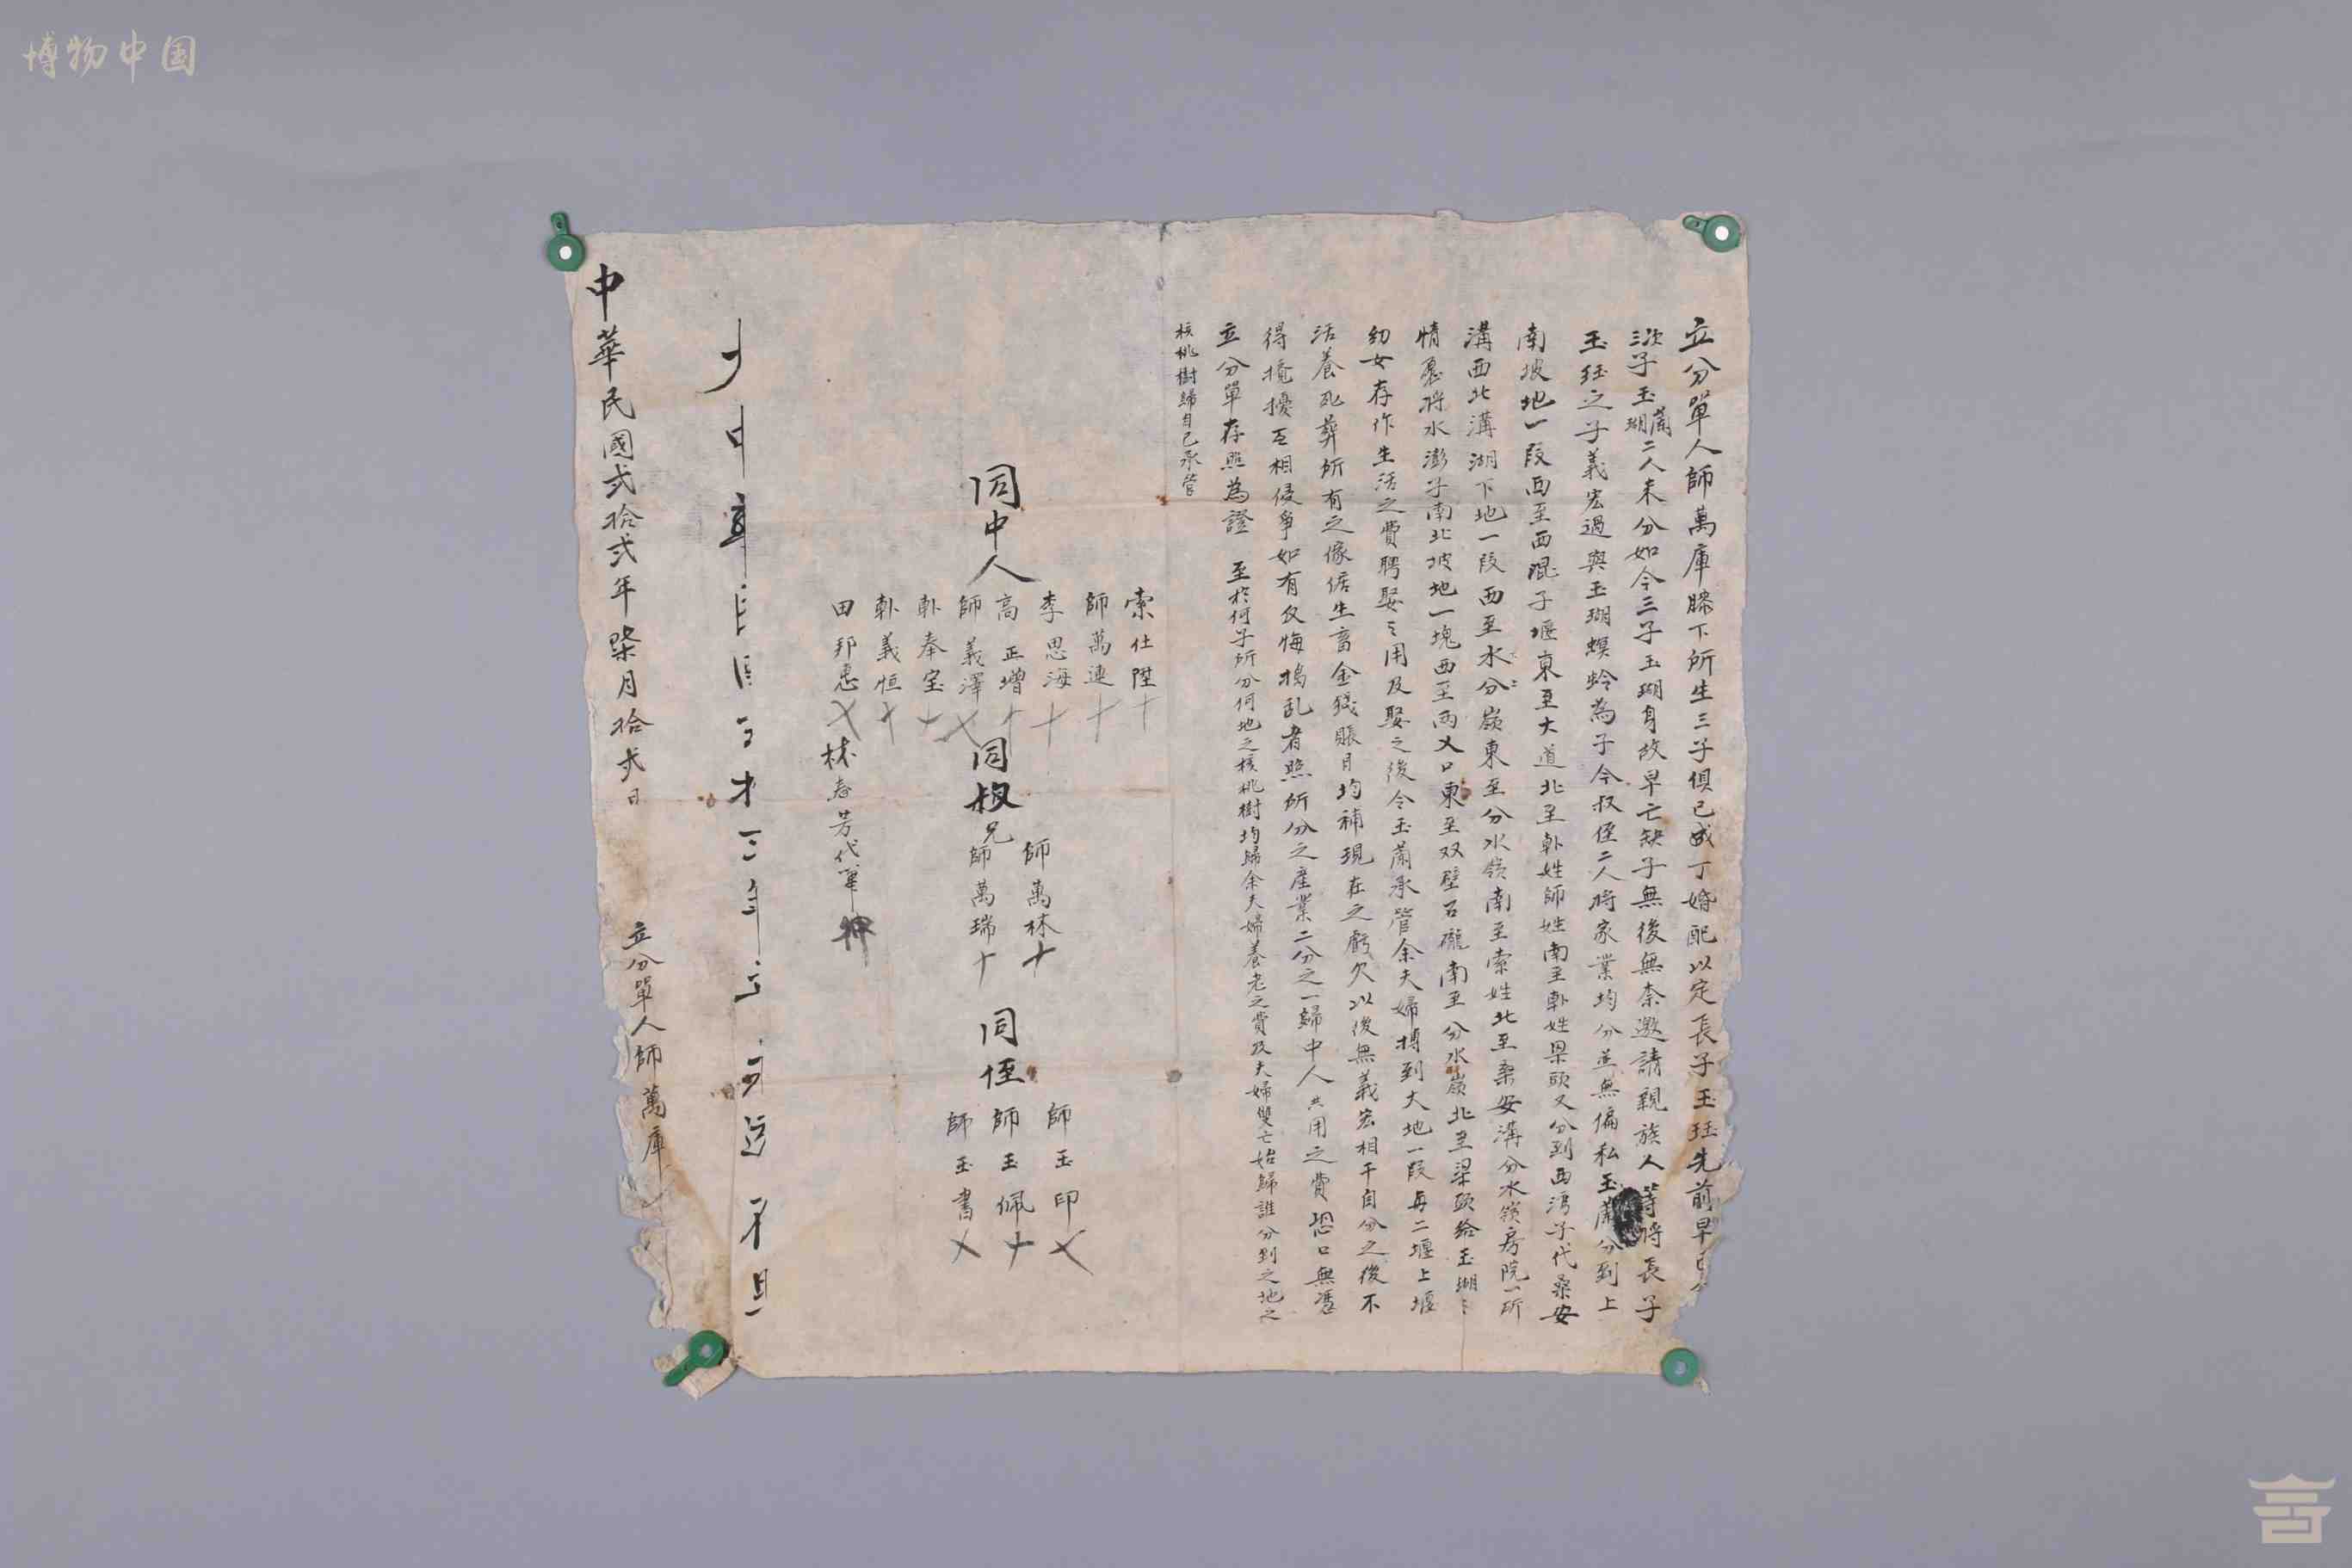 博物中国
立分單人師萬庫膝下所生三子俱已成丁婚配以定長子玉珏先前早已分
次三子玉蘭瑚二人未分如今三子玉瑚身故早亡缺子無後無柰邀請親族人等將長子
玉珏之子義宏過與玉瑚螟蛉為子今叔侄二人將家業均分並無偏私玉蘭分到上
南坡地一段西至西混子堰東至大道北至軙姓師姓南至軙姓梁頭又分到西湾子代桑安
溝西北溝湖下地一段西至水分嶺東至分水嶺南至索姓北至桑安溝分水嶺房院一所
情愿將水澎子南北坡地一塊西至两乂口東至双壁石礲南至分水嶺北至梁頭給玉瑚之
幼女存作生活之費聘娶之用及娶之後令玉蘭承管余夫婦摶到大地一段每二堰上堰
活養死葬所有之傢俱生畜金錢賬目均補現在之虧欠以後無義宏相干自分之後不
得攪擾互相侵爭如有反悔搗乱者照所分之產業二分之一歸中人共用之費恐口無憑
立分單存照為證 至於何子所分何地之核桃樹均歸余夫婦養老之費及夫婦雙亡始歸誰分到之地之
核桃樹歸自己承管
同中人
索仕陞 十
師萬連 十
李思海 十
高正增 十
師義澤 乂
軙奉宝 十
軙義恒 十
田邦惠 乂
林志芳代筆 押
同叔兄
師萬林 十
師萬瑞 十
同侄
師玉印 乂
師玉佩 十
師玉書 乂
中華民國弍拾弍年柒月拾弍日 立分單人師萬庫